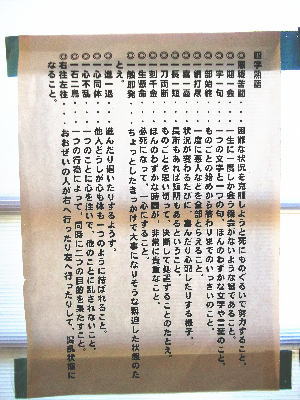 四字熟語
◎悪戦苦闘 困難な状況を克服しようと死にものぐるいで努力すること。
◎一期一会 一生に一度しか会う機会がないような縁であること。
◎一字一句 一つの文字と一つの句。ほんのわずかな文字や言葉のこと。
◎一部始終 ものごとの始めから終わりまでのいっさいのこと。
◎一網打尽 一度に悪人などを全部とらえること。
◎一喜一憂 状況が変わるたびに、喜んだり心配したりする様子。
◎一長一短 長所もあれば短所もあるということ。
◎一刀両断 ものごとを思い切って、決断して処置することのたとえ。
◎一刻千金 ほんのわずかな時間が、非常に貴重なこと。
◎一生懸命 必死になって、一心にすること。
◎一触即発 ちょっとしたきっかけで大事になりそうな緊迫した状態のた
とえ。
◎一進一退 進んだり退いたりするようす。
◎一心同体 他人どうしが心も体も一つのように結ばれること。
◎一心不乱 一つのことに心を注いで、他のことに乱されないこと。
◎一石二鳥 一つの行為によって、同時に二つの目的を果たすこと。
◎右往左往 おおぜいの人が右へ行ったり左へ行ったりして、混乱状態に
なること。